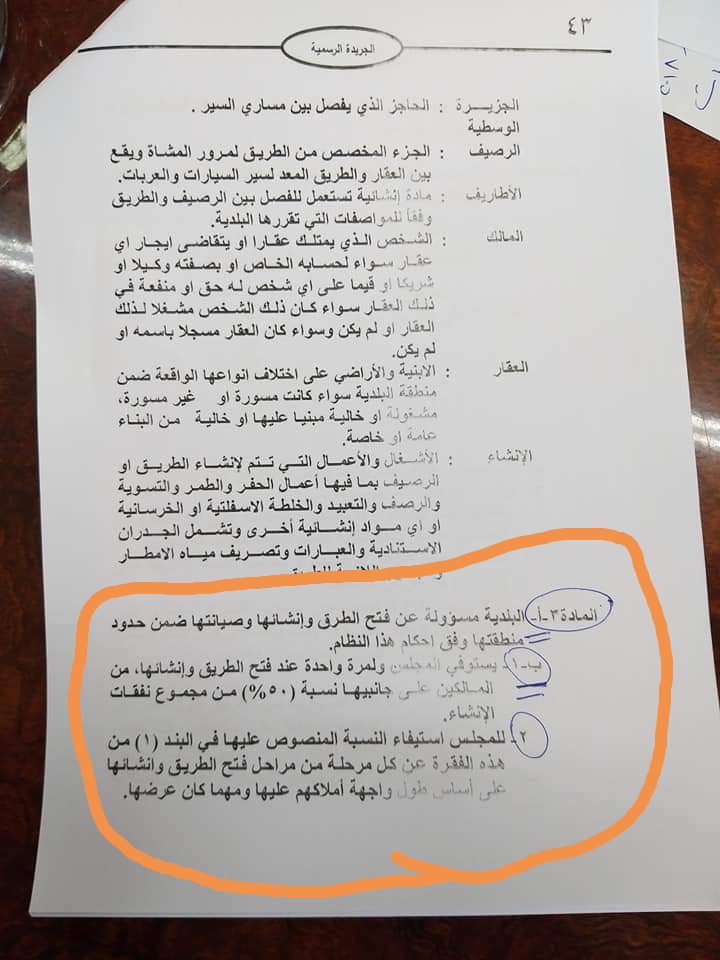 ٤٣
الجريدة الرسمية
الجزيـــرة : الحاجز الذي يفصل بين مساري السير .
الوسطية
الرصيف : الجزء المخصص من الطريق لمرور المشاة ويقع
بين العقار والطريق المعد لسير السيارات والعربات.
الأطاريف : مادة إنشائية تستعمل للفصل بين الرصيف والطريق
وفقاً للمواصفات التي تقررها البلدية.
المالك : الشخص الذي يمتلك عقارا او يتقاضى ايجار اي
عقار سواء لحسابه الخاص او بصفته وكيلا او
شريكا او قيما على اي شخص له حق او منفعة في
ذلك العقار سواء كان ذلك الشخص مشغلا لذلك
العقار او لم يكن وسواء كان العقار مسجلا باسمه او
لم يكن.
العقار : الابنية والأراضي على اختلاف انواعها الواقعة ضمن
منطقة البلدية سواء كانت مسورة او غير مسورة،
مشغولة او خالية مبنيا عليها او خالية من البناء
عامة او خاصة.
الإنشاء : الأشغال والأعمال التي تتم لإنشاء الطريق او
الرصيف بما فيها أعمال الحفر والطمر والتسوية
والرصف والتعبيد والخلطة الاسفلتية او الخرسانية
او اي مواد إنشائية أخرى وتشمل الجدران
الاستنادية والعبارات وتصريف مياه الامطار
المادة٣-أ- البلدية مسؤولة عن فتح الطرق وإنشائها وصيانتها ضمن حدود
منطقتها وفق احكام هذا النظام.
ب-١- يستوفي المجلس ولمرة واحدة عند فتح الطريق وإنشائها، من
المالكين على جانبيها نسبة (٥٠%) من مجموع نفقات
الإنشاء.
٢- للمجلس استيفاء النسبة المنصوص عليها في البند (١) من
هذه الفقرة عن كل مرحلة من مراحل فتح الطريق وانشائها
على أساس طول واجهة أملاكهم عليها ومهما كان عرضها.